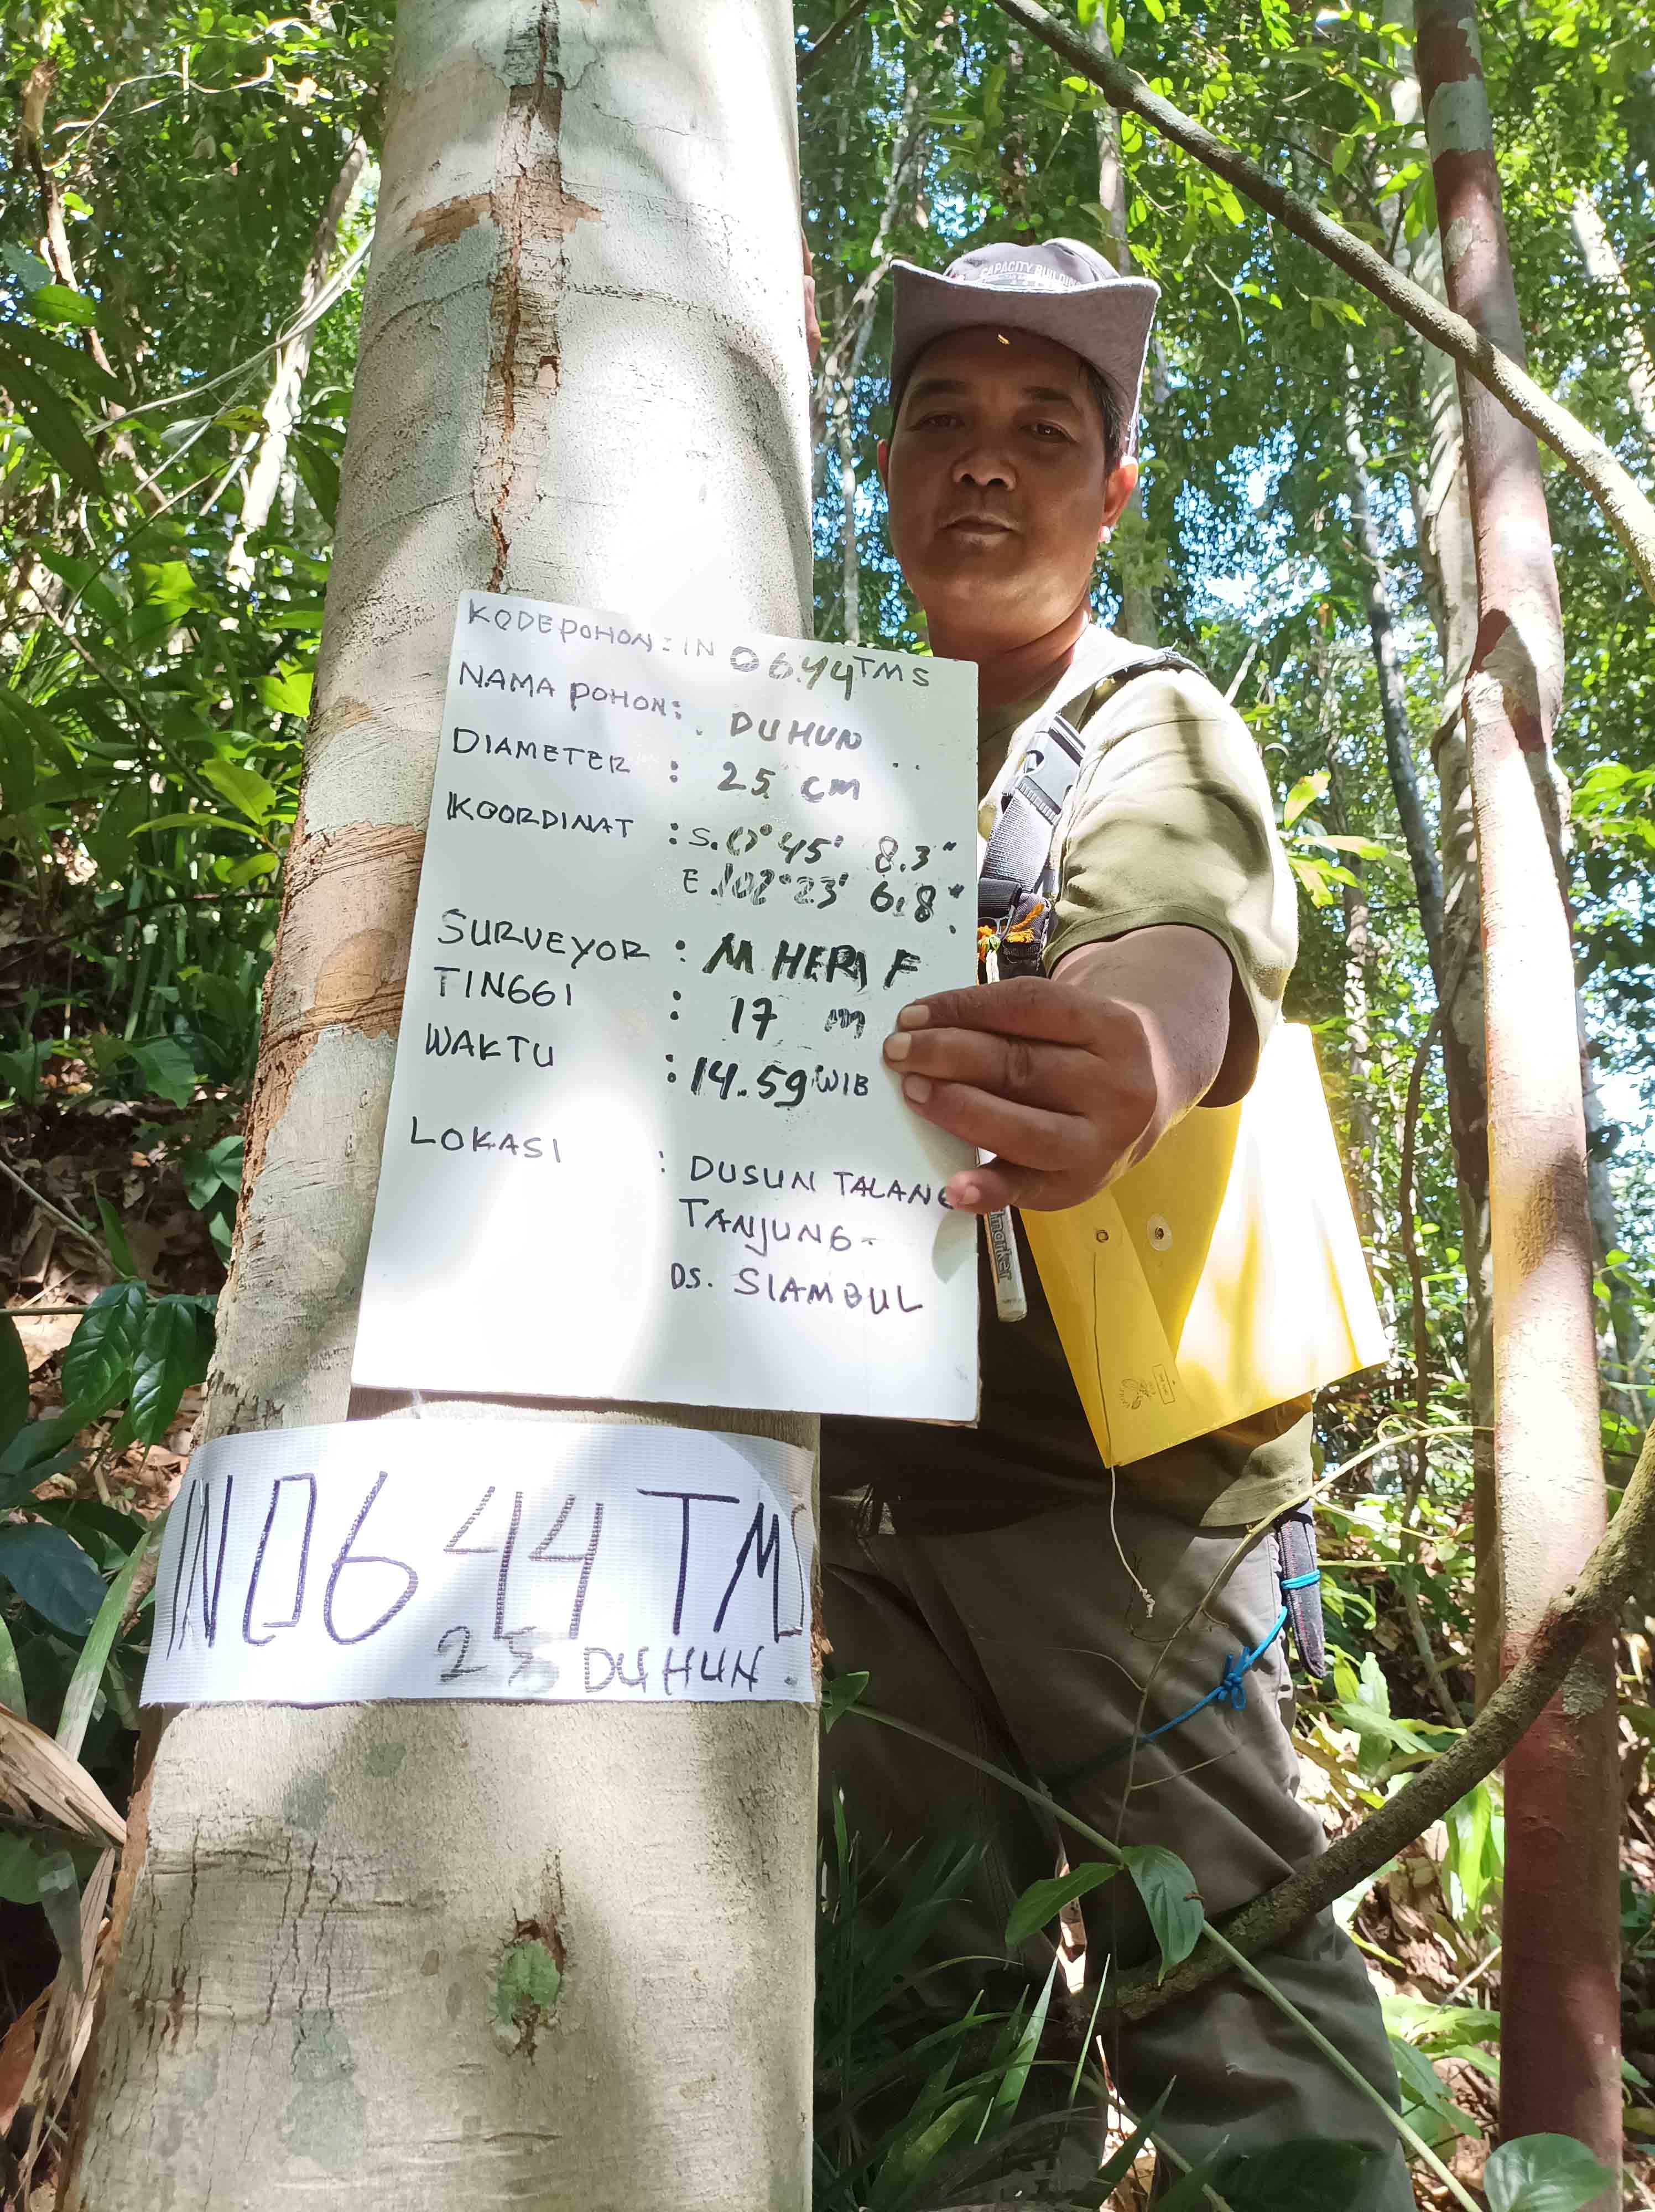 CAPACITY BUILDING
KODE POHON : IN 0644 TMS
NAMA POHON : DUHUN
DIAMETER : 25 cm
KOORDINAT : S. 0° 45' 8.3"
E. 102° 23' 6.8"
SURVEYOR : M HERI F
TINGGI : 17 m
WAKTU : 14.59 WIB
LOKASI : DUSUN TALANG
TANJUNG -
DS. SIAMBUL
marker
IN0644 TMS
25 DUHUN